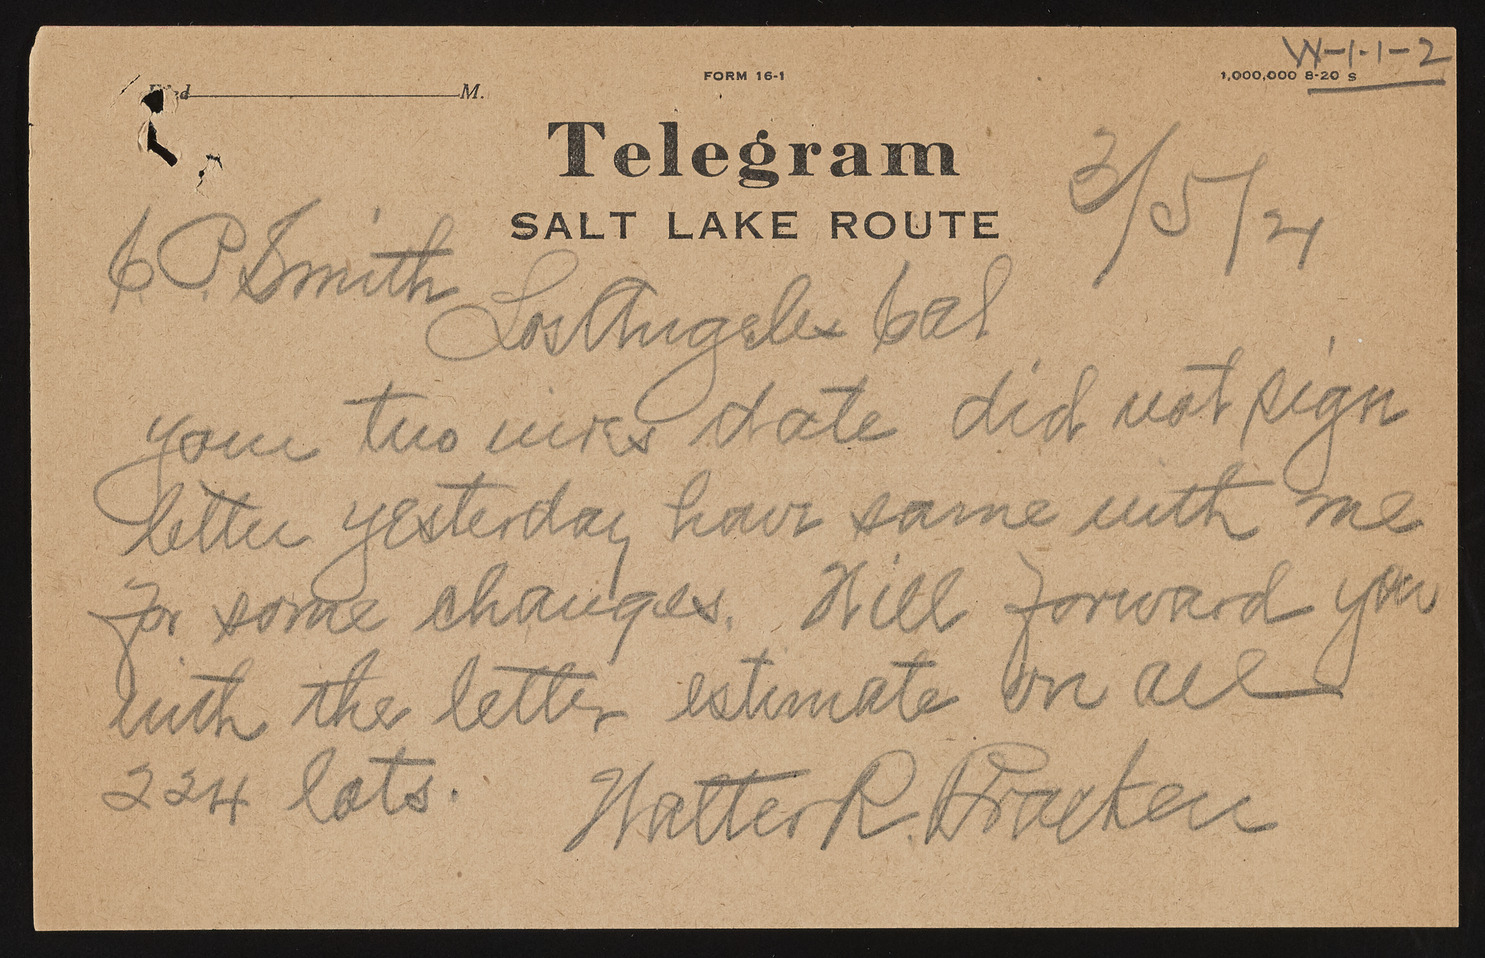 W-1-1-2
Filed M.
FORM 16-1
1,000,000 8-20 S
Telegram
SALT LAKE ROUTE
3/5/24
C.P. Smith
Los Angeles Cal
your two wires date did not sign
letter yesterday have same with me
for some changes. Will forward you
with the letter estimate on all
224 lots.
Walter R. Bracken